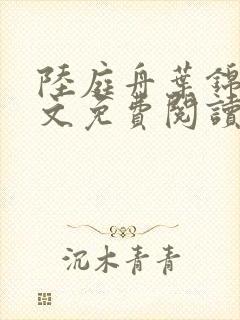 陸庭舟葉錦
文免費閱讀
沉木青青